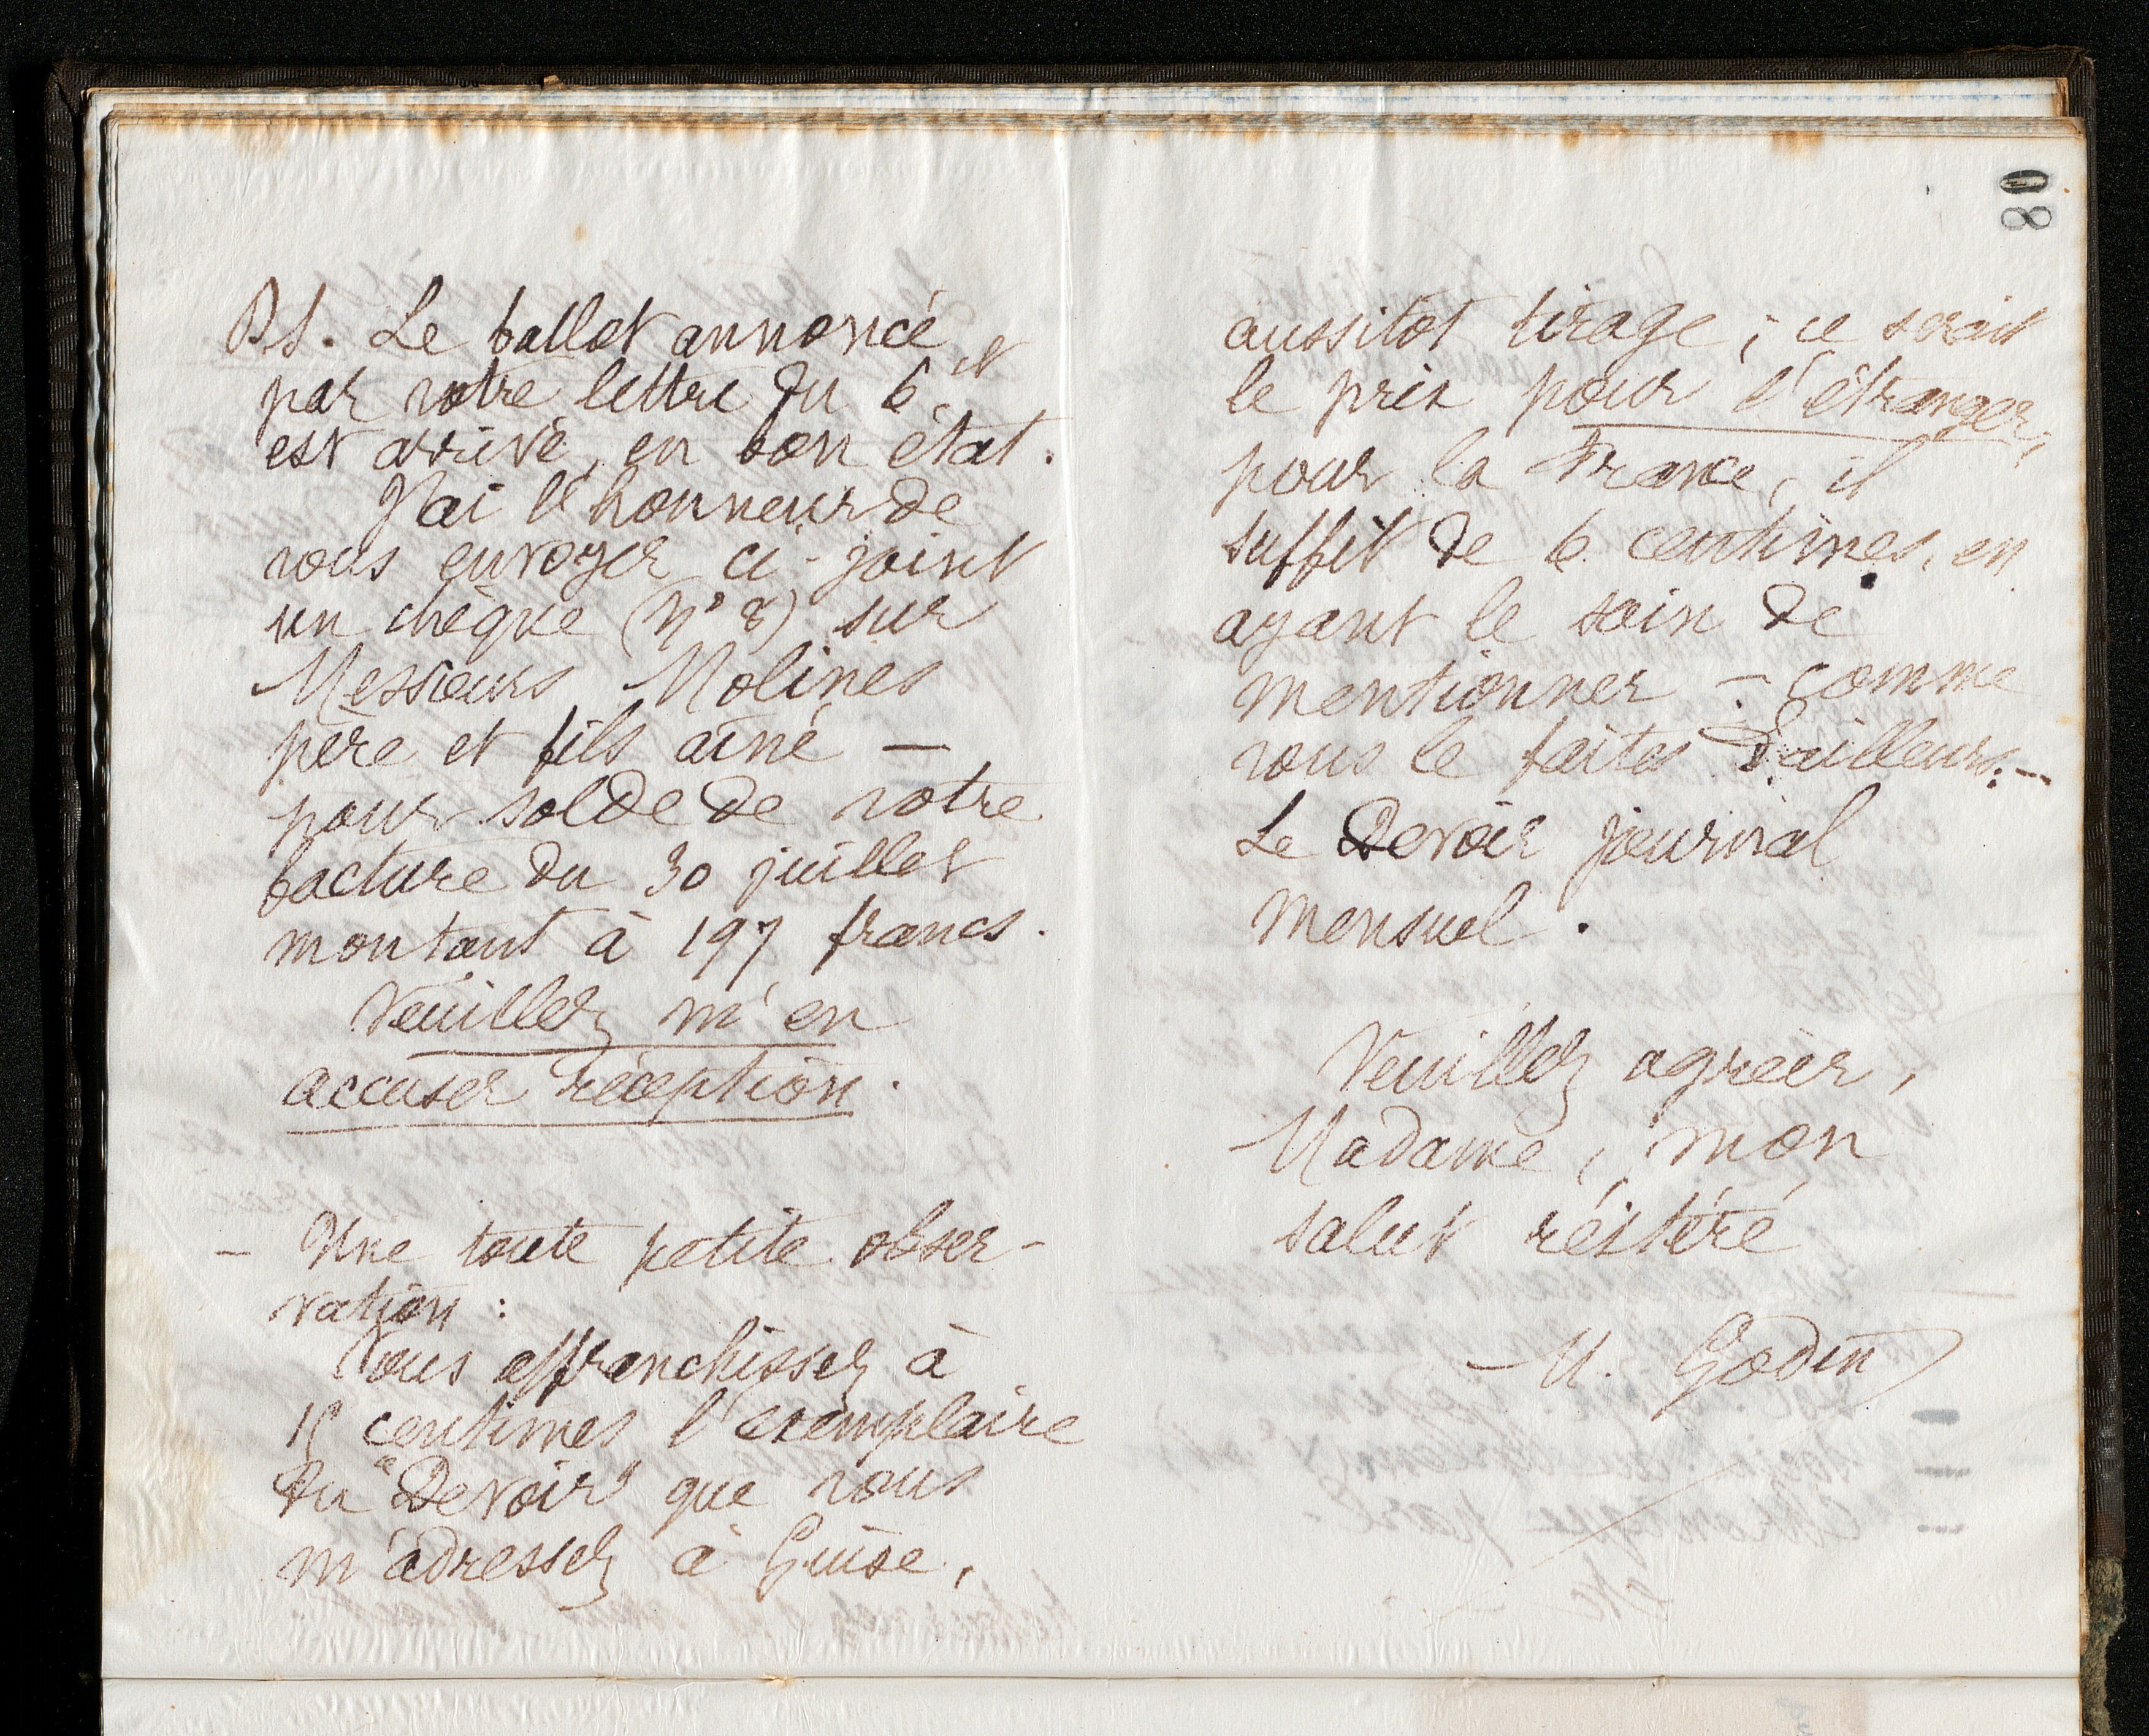 80
PS. Le ballot annoncé
par votre lettre du 6 ct
est arrivé, en bon état.
J'ai l'honneur de
vous envoyer ci-joint
un chèque (n° 8) sur
Messieurs Molines
père et fils aîné —
pour solde de votre
facture du 30 juillet
montant à 197 francs.
Veuillez m'en
accuser réception.
— Une toute petite obser-
vation :
Vous affranchissez à
15 centimes l'exemplaire
du "Devoir" que vous
m'adressez à Guise,
aussitôt tirage ; ce serait
le prix pour l'étranger,
pour la France, il
suffit de 6 centimes, en
ayant le soin de
mentionner — comme
vous le faites d'ailleurs. —
Le Devoir journal
mensuel.
Veuillez agréer,
Madame, mon
salut réitéré
M. Godin